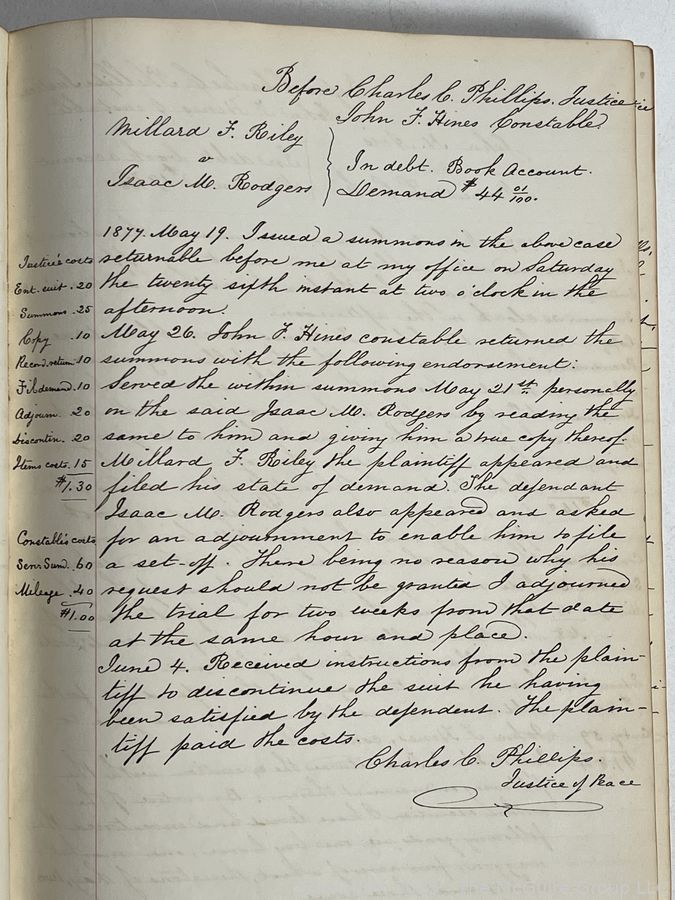 Before Charles C. Phillips. Justice
John F. Hines Constable.
Millard F. Riley
v
Isaac M. Rodgers
In debt. Book Account.
Demand $44 01/100.
1877. May 19. Issued a summons in the above case
returnable before me at my office on Saturday
the twenty sixth instant at two o'clock in the
afternoon.
May 26. John F. Hines constable returned the
summons with the following endorsement:
Served the within summons May 21st. personally
on the said Isaac M. Rodgers by reading the
same to him and giving him a true copy thereof.
Millard F. Riley the plaintiff appeared and
filed his state of demand. The defendant
Isaac M. Rodgers also appeared and asked
for an adjournment to enable him to file
a set-off. There being no reason why his
request should not be granted I adjourned
the trial for two weeks from that date
at the same hour and place.
June 4. Received instructions from the plain-
tiff to discontinue the suit he having
been satisfied by the defendent. The plain-
tiff paid the costs.
Charles C. Phillips.
Justice of Peace
Justice's costs
Ent. suit .20
Summons .25
Copy .10
Recor. return .10
Fil demand .10
Adjourn. .20
Discontin. .20
Items costs .15
$1.30
Constable's costs
Serv. Sum. .60
Mileage .40
$1.00
The McGuire Group LLC